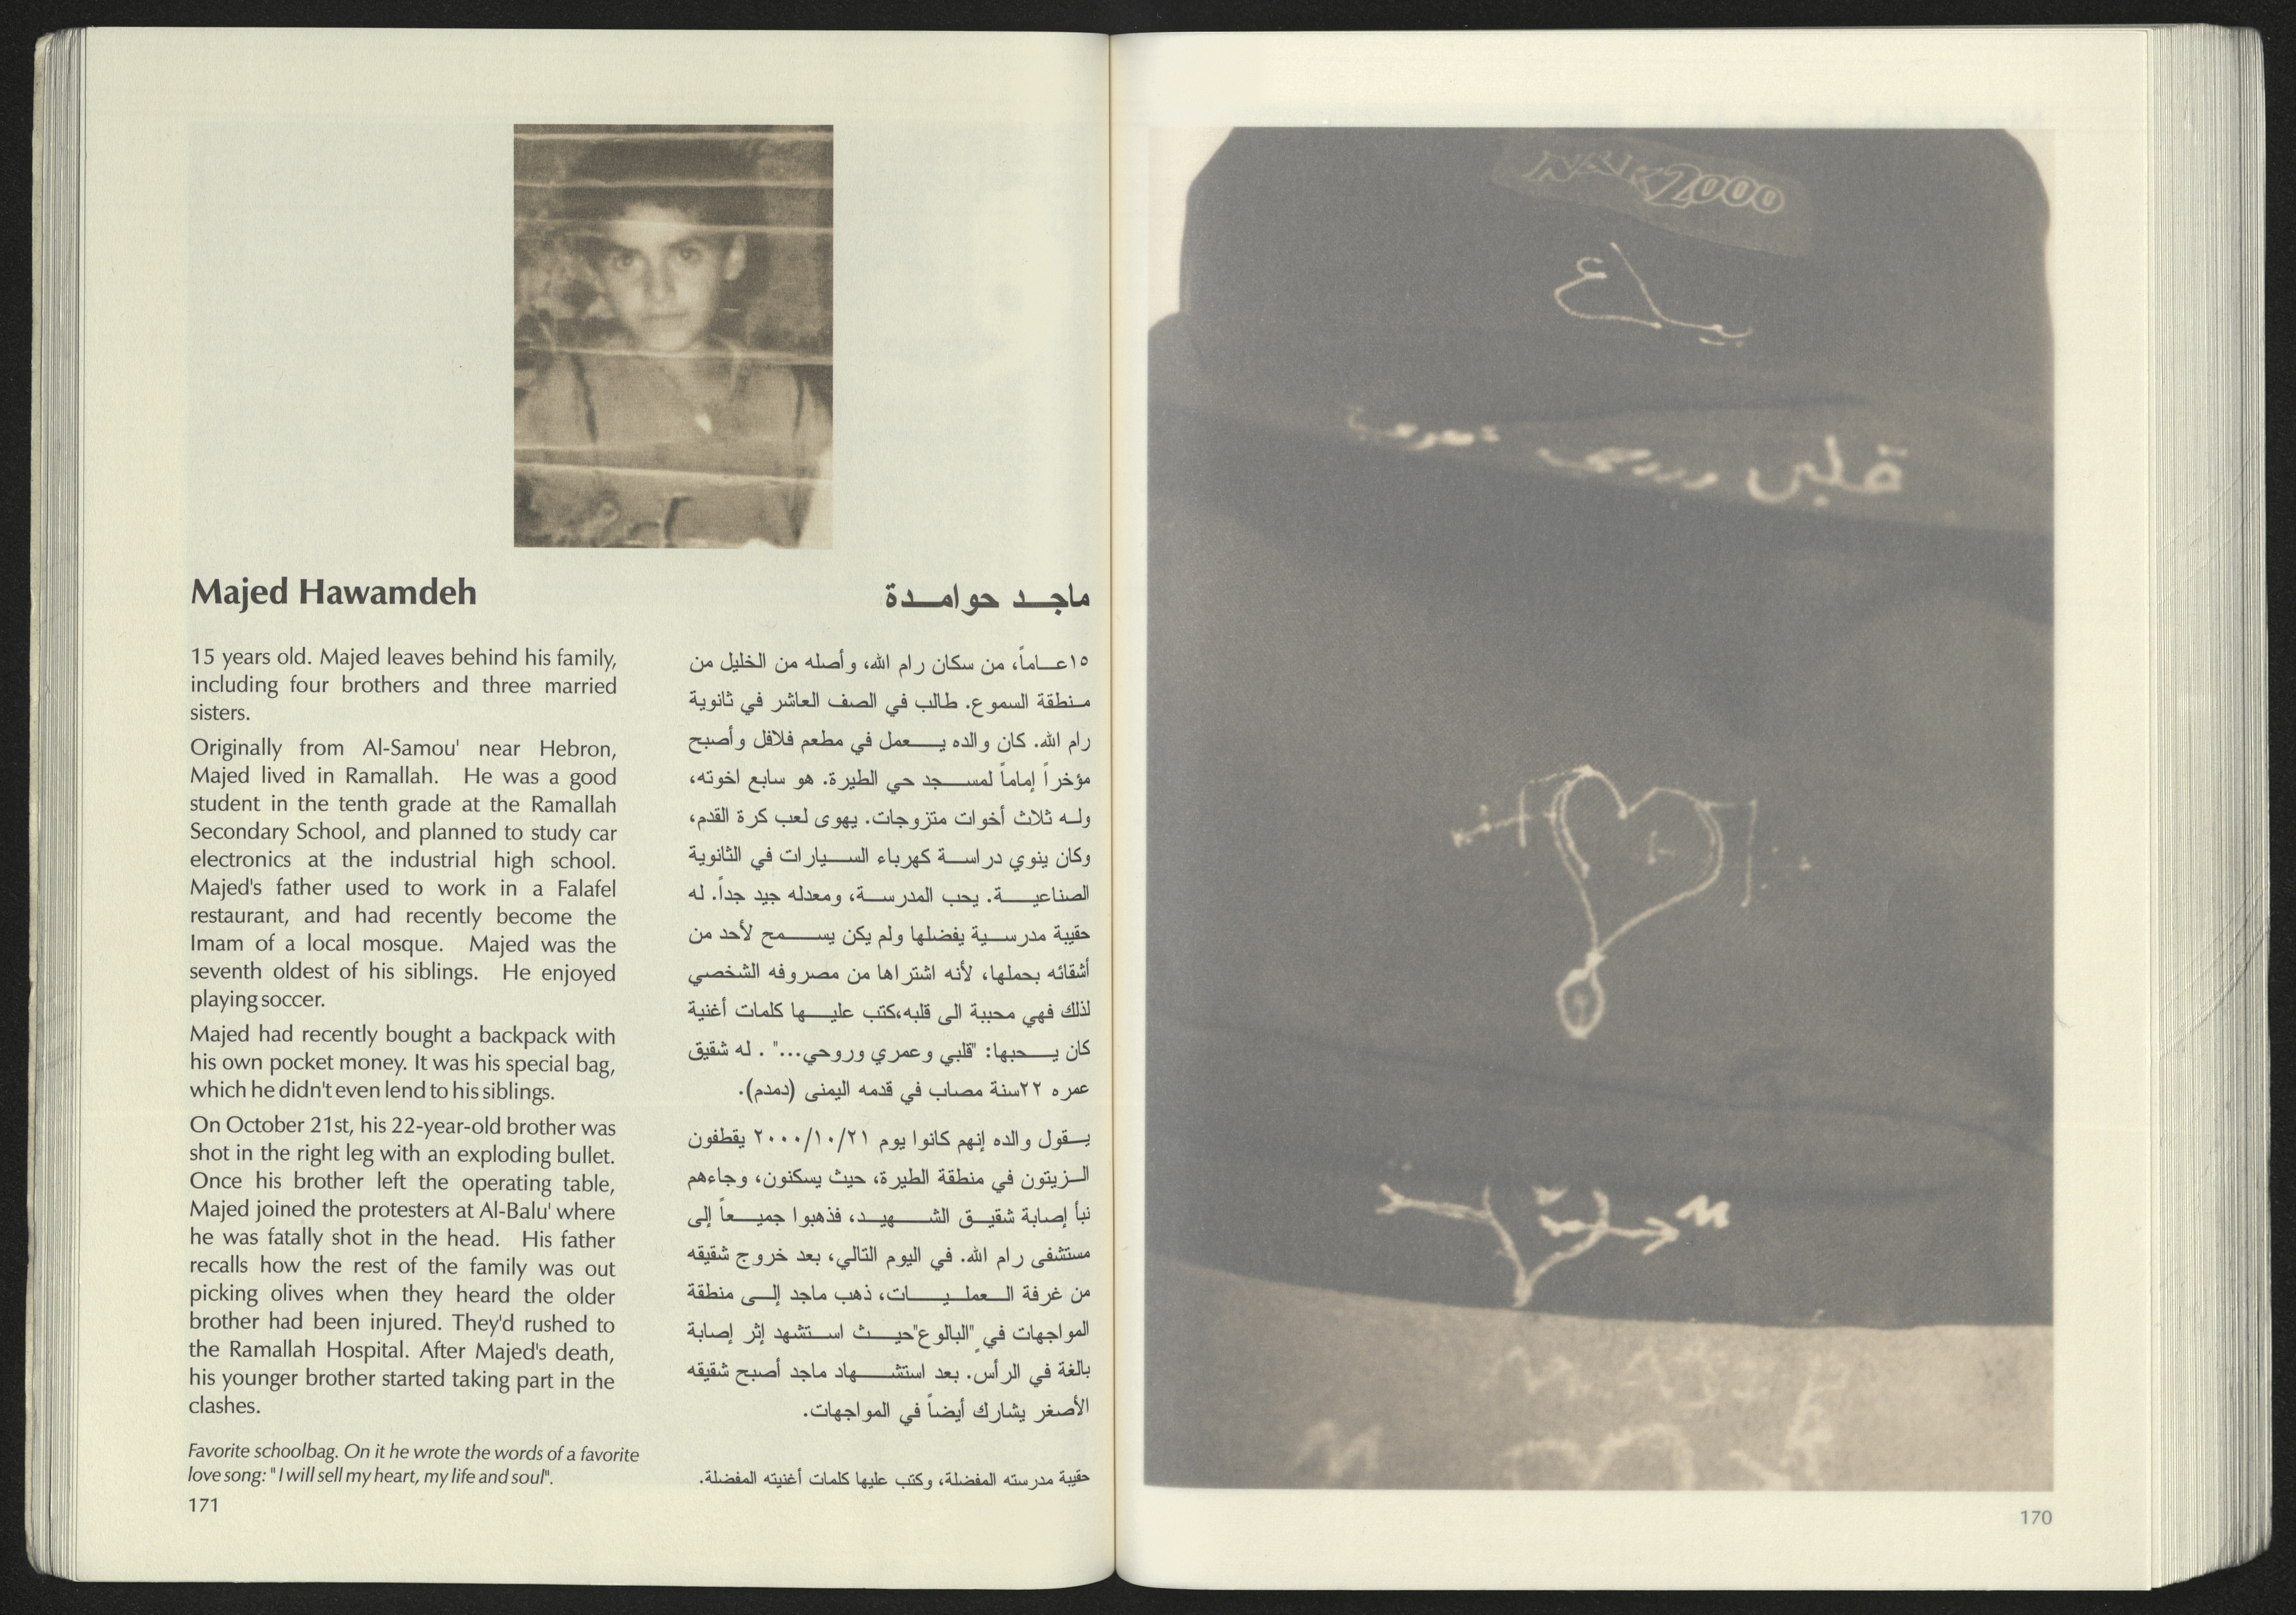 Majed Hawamdeh
15 years old. Majed leaves behind his family,
including four brothers and three married
sisters.
Originally from Al-Samou' near Hebron,
Majed lived in Ramallah. He was a good
student in the tenth grade at the Ramallah
Secondary School, and planned to study car
electronics at the industrial high school.
Majed's father used to work in a Falafel
restaurant, and had recently become the
Imam of a local mosque. Majed was the
seventh oldest of his siblings. He enjoyed
playing soccer.
Majed had recently bought a backpack with
his own pocket money. It was his special bag,
which he didn't even lend to his siblings.
On October 21st, his 22-year-old brother was
shot in the right leg with an exploding bullet.
Once his brother left the operating table,
Majed joined the protesters at Al-Balu' where
he was fatally shot in the head. His father
recalls how the rest of the family was out
picking olives when they heard the older
brother had been injured. They'd rushed to
the Ramallah Hospital. After Majed's death,
his younger brother started taking part in the
clashes.
Favorite schoolbag. On it he wrote the words of a favorite
love song: "I will sell my heart, my life and soul".
171
ماجد حوامدة
١٥عاماً، من سكان رام الله، وأصله من الخليل من
منطقة السموع. طالب في الصف العاشر في ثانوية
رام الله. كان والده يعمل في مطعم فلافل وأصبح
مؤخراً إماماً لمسجد حي الطيرة. هو سابع اخوته،
وله ثلاث أخوات متزوجات. يهوى لعب كرة القدم،
وكان ينوي دراسة كهرباء السيارات في الثانوية
الصناعية. يحب المدرسة، ومعدله جيد جداً. له
حقيبة مدرسية يفضلها ولم يكن يسمح لأحد من
أشقائه بحملها، لأنه اشتراها من مصروفه الشخصي
لذلك فهي محببة الى قلبه،كتب عليها كلمات أغنية
كان يحبها: "قلبي وعمري وروحي...". له شقيق
عمره ٢٢سنة مصاب في قدمه اليمنى (دمدم).
يقول والده إنهم كانوا يوم ٢٠٠٠/١٠/٢١ يقطفون
الزيتون في منطقة الطيرة، حيث يسكنون، وجاءهم
نبأ إصابة شقيق الشهيد، فذهبوا جميعاً إلى
مستشفى رام الله. في اليوم التالي، بعد خروج شقيقه
من غرفة العمليات، ذهب ماجد إلى منطقة
المواجهات في "البالوع"حيث استشهد إثر إصابة
بالغة في الرأس. بعد استشهاد ماجد أصبح شقيقه
الأصغر يشارك أيضاً في المواجهات.
حقيبة مدرسته المفضلة، وكتب عليها كلمات أغنيته المفضلة.
2000
بياع
قلبي
M
170